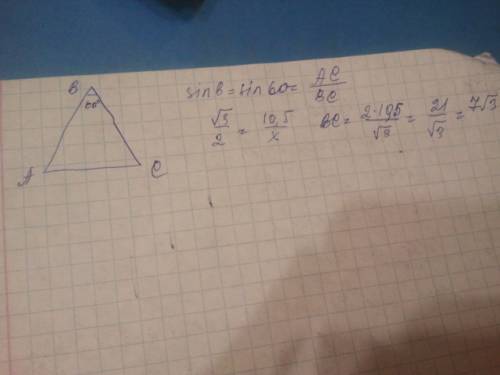 B
60°
A
C
sin B = sin 60 = AC/BC
√3/2 = 10,5/x
BC = 2·10,5/√3 = 21/√3 = 7√3